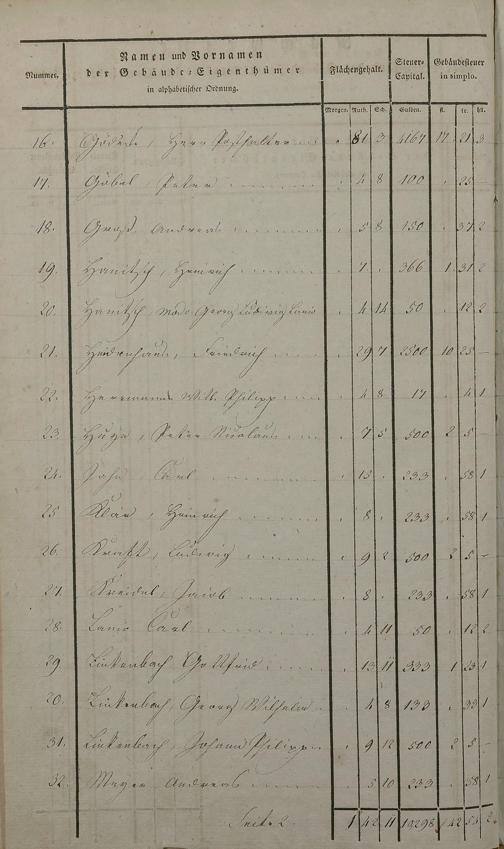 Nummer. Namen und Vornamen der Gebäude-Eigenthümer in alphabetischer Ordnung. Flächengehalt. Steuer-Capital. Gebäudesteuer in simplo.
Morgen. Ruth. Sch. Gulden. fl. kr. hl.
16. Herr Posthalter 81 3 4167 17 21 3
17. Göbel, Peter 4 8 100 . 25 –
18. Groß, Andreas 5 8 150 . 37 2
19. Hanitsch, Heinrich 7 . 366 1 31 2
20. Hanitsch, Georg Ludwig 4 14 50 . 12 2
21. Friedrich 29 7 2500 10 25 –
22. Herrmanns Wtb. Philipp 4 8 17 . 4 1
23. Peter Nicolaus 7 5 500 2 5 –
24. Jahn Carl 15 . 233 . 58 1
25 Klar, Heinrich 8 . 233 . 58 1
26. Kraft, Ludwig 9 2 500 2 5 –
27. Kreidel, Jacob 8 . 233 . 58 1
28. Lanio Carl 4 11 50 . 12 2
29. Linkenbach, Gottfried 13 11 333 1 23 1
30. Linkenbach, Georg Wilhelm 4 8 133 . 33 1
31. Linkenbach, Johann Philipp 9 12 500 2 5 –
32. Mayer Andreas 5 10 233 . 58 1
Seite 2. 1 42 11 10298 42 54 2